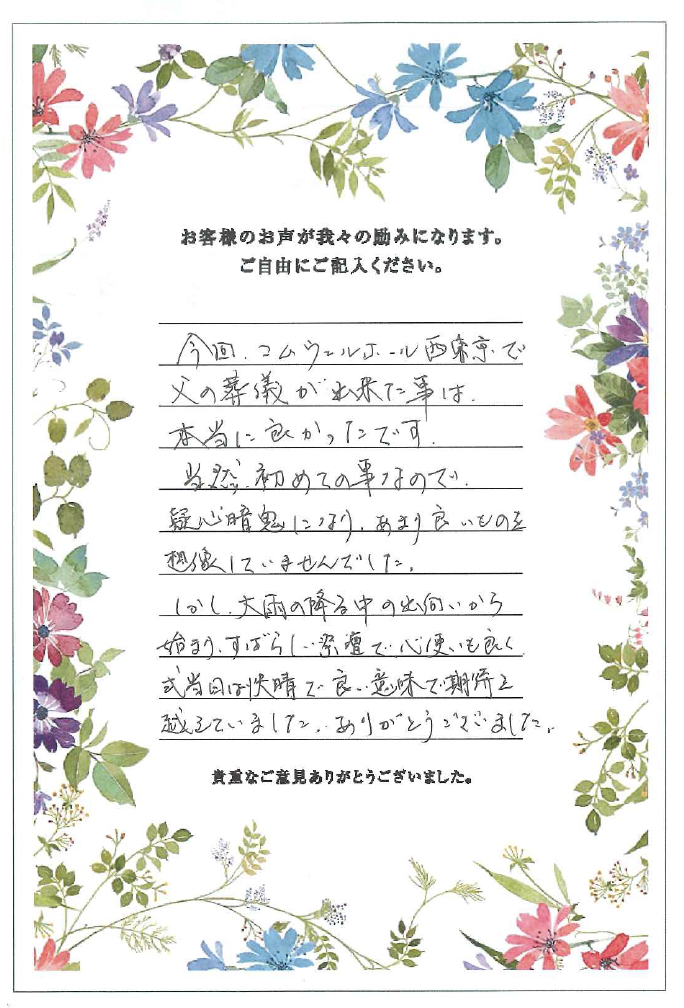 お客様のお声が我々の励みになります。
ご自由にご記入ください。
今回、コムウェルホール西東京で
父の葬儀が出来た事は、
本当に良かったです。
当然、初めての事なので、
疑心暗鬼になり、あまり良いものを
想像していませんでした。
しかし、大雨の降る中の出向いから
始まり、すばらしい祭壇で、心使いも良く
式当日は快晴で良い意味で期待を
越えていました。ありがとうございました。
貴重なご意見ありがとうございました。